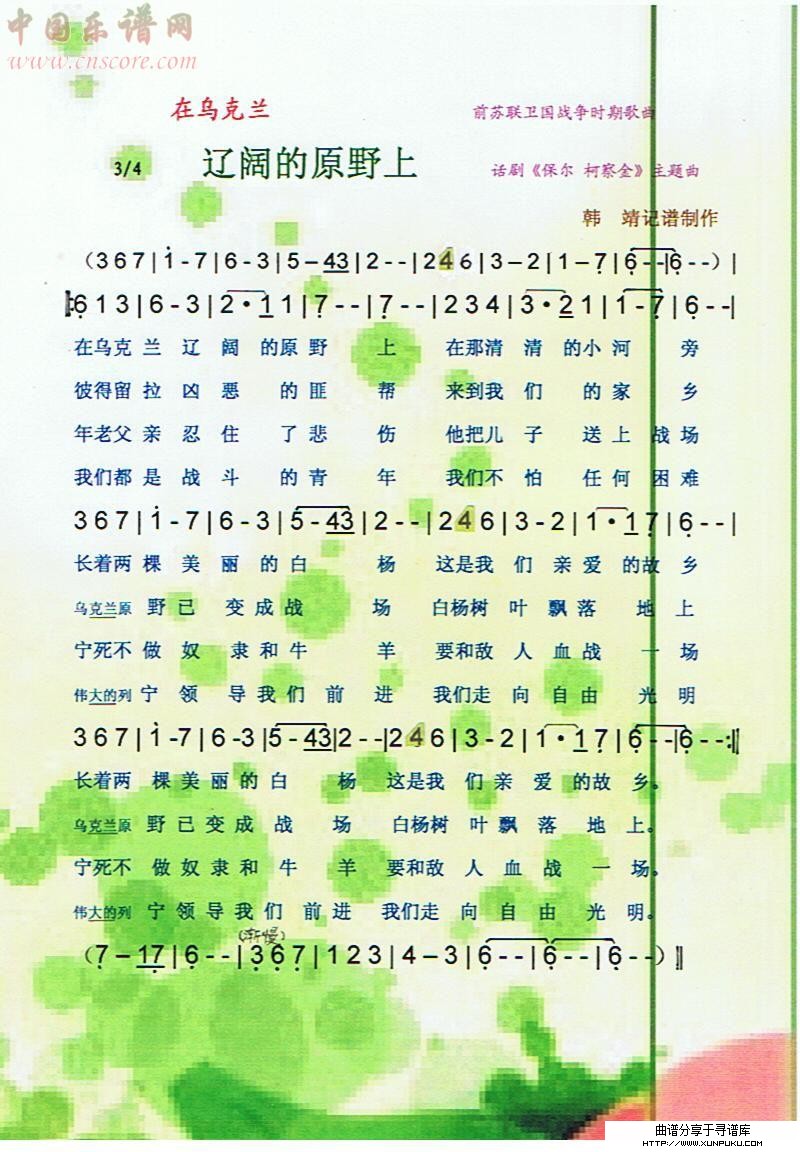 中国乐谱网
www.cnscore.com
在乌克兰 前苏联卫国战争时期歌曲
3/4 辽阔的原野上 话剧《保尔 柯察金》主题曲
韩 靖记谱制作
(3 6 7 | i - 7 | 6 - 3 | 5 - 43 | 2 - - | 2 4 6 | 3 - 2 | 1 - 7̣ | 6̣ - - | 6̣ - - ) |
|: 6̣ 1 3 | 6 - 3 | 2 · 1 1 | 7̣ - - | 7̣ - - | 2 3 4 | 3 · 2 1 | 1 - 7̣ | 6̣ - - |
在乌克 兰 辽 阔 的原 野 上 在那清 清 的小 河 旁
彼得留 拉 凶 恶 的 匪 帮 来到我 们 的 家 乡
年老父 亲 忍 住 了 悲 伤 他把儿 子 送 上 战 场
我们都 是 战 斗 的 青 年 我们不 怕 任 何 困 难
3 6 7 | i - 7 | 6 - 3 | 5 - 43 | 2 - - | 2 4 6 | 3 - 2 | 1 · 1 7̣ | 6̣ - - |
长着两 棵 美 丽 的 白 杨 这是我 们 亲 爱 的故 乡
乌克兰原 野 已 变 成 战 场 白杨树 叶 飘 落 地 上
宁死不 做 奴 隶 和 牛 羊 要和敌 人 血 战 一 场
伟大的列 宁 领 导 我 们 前 进 我们走 向 自 由 光 明
3 6 7 | i - 7 | 6 - 3 | 5 - 43 | 2 - - | 2 4 6 | 3 - 2 | 1 · 1 7̣ | 6̣ - - | 6̣ - - :||
长着两 棵 美 丽 的 白 杨 这是我 们 亲 爱 的 故 乡。
乌克兰原 野 已 变 成 战 场 白杨树 叶 飘 落 地 上。
宁死不 做 奴 隶 和 牛 羊 要和敌 人 血 战 一 场。
伟大的列 宁 领 导 我 们 前 进 我们走 向 自 由 光 明。
(渐慢)
(7̣ - 17̣ | 6̣ - - | 3̣ 6̣ 7̣ | 1 2 3 | 4 - 3 | 6̣ - - | 6̣ - - | 6̣ - - ) ||
曲谱分享于寻谱库
HTTP://WWW.XUNPUKU.COM